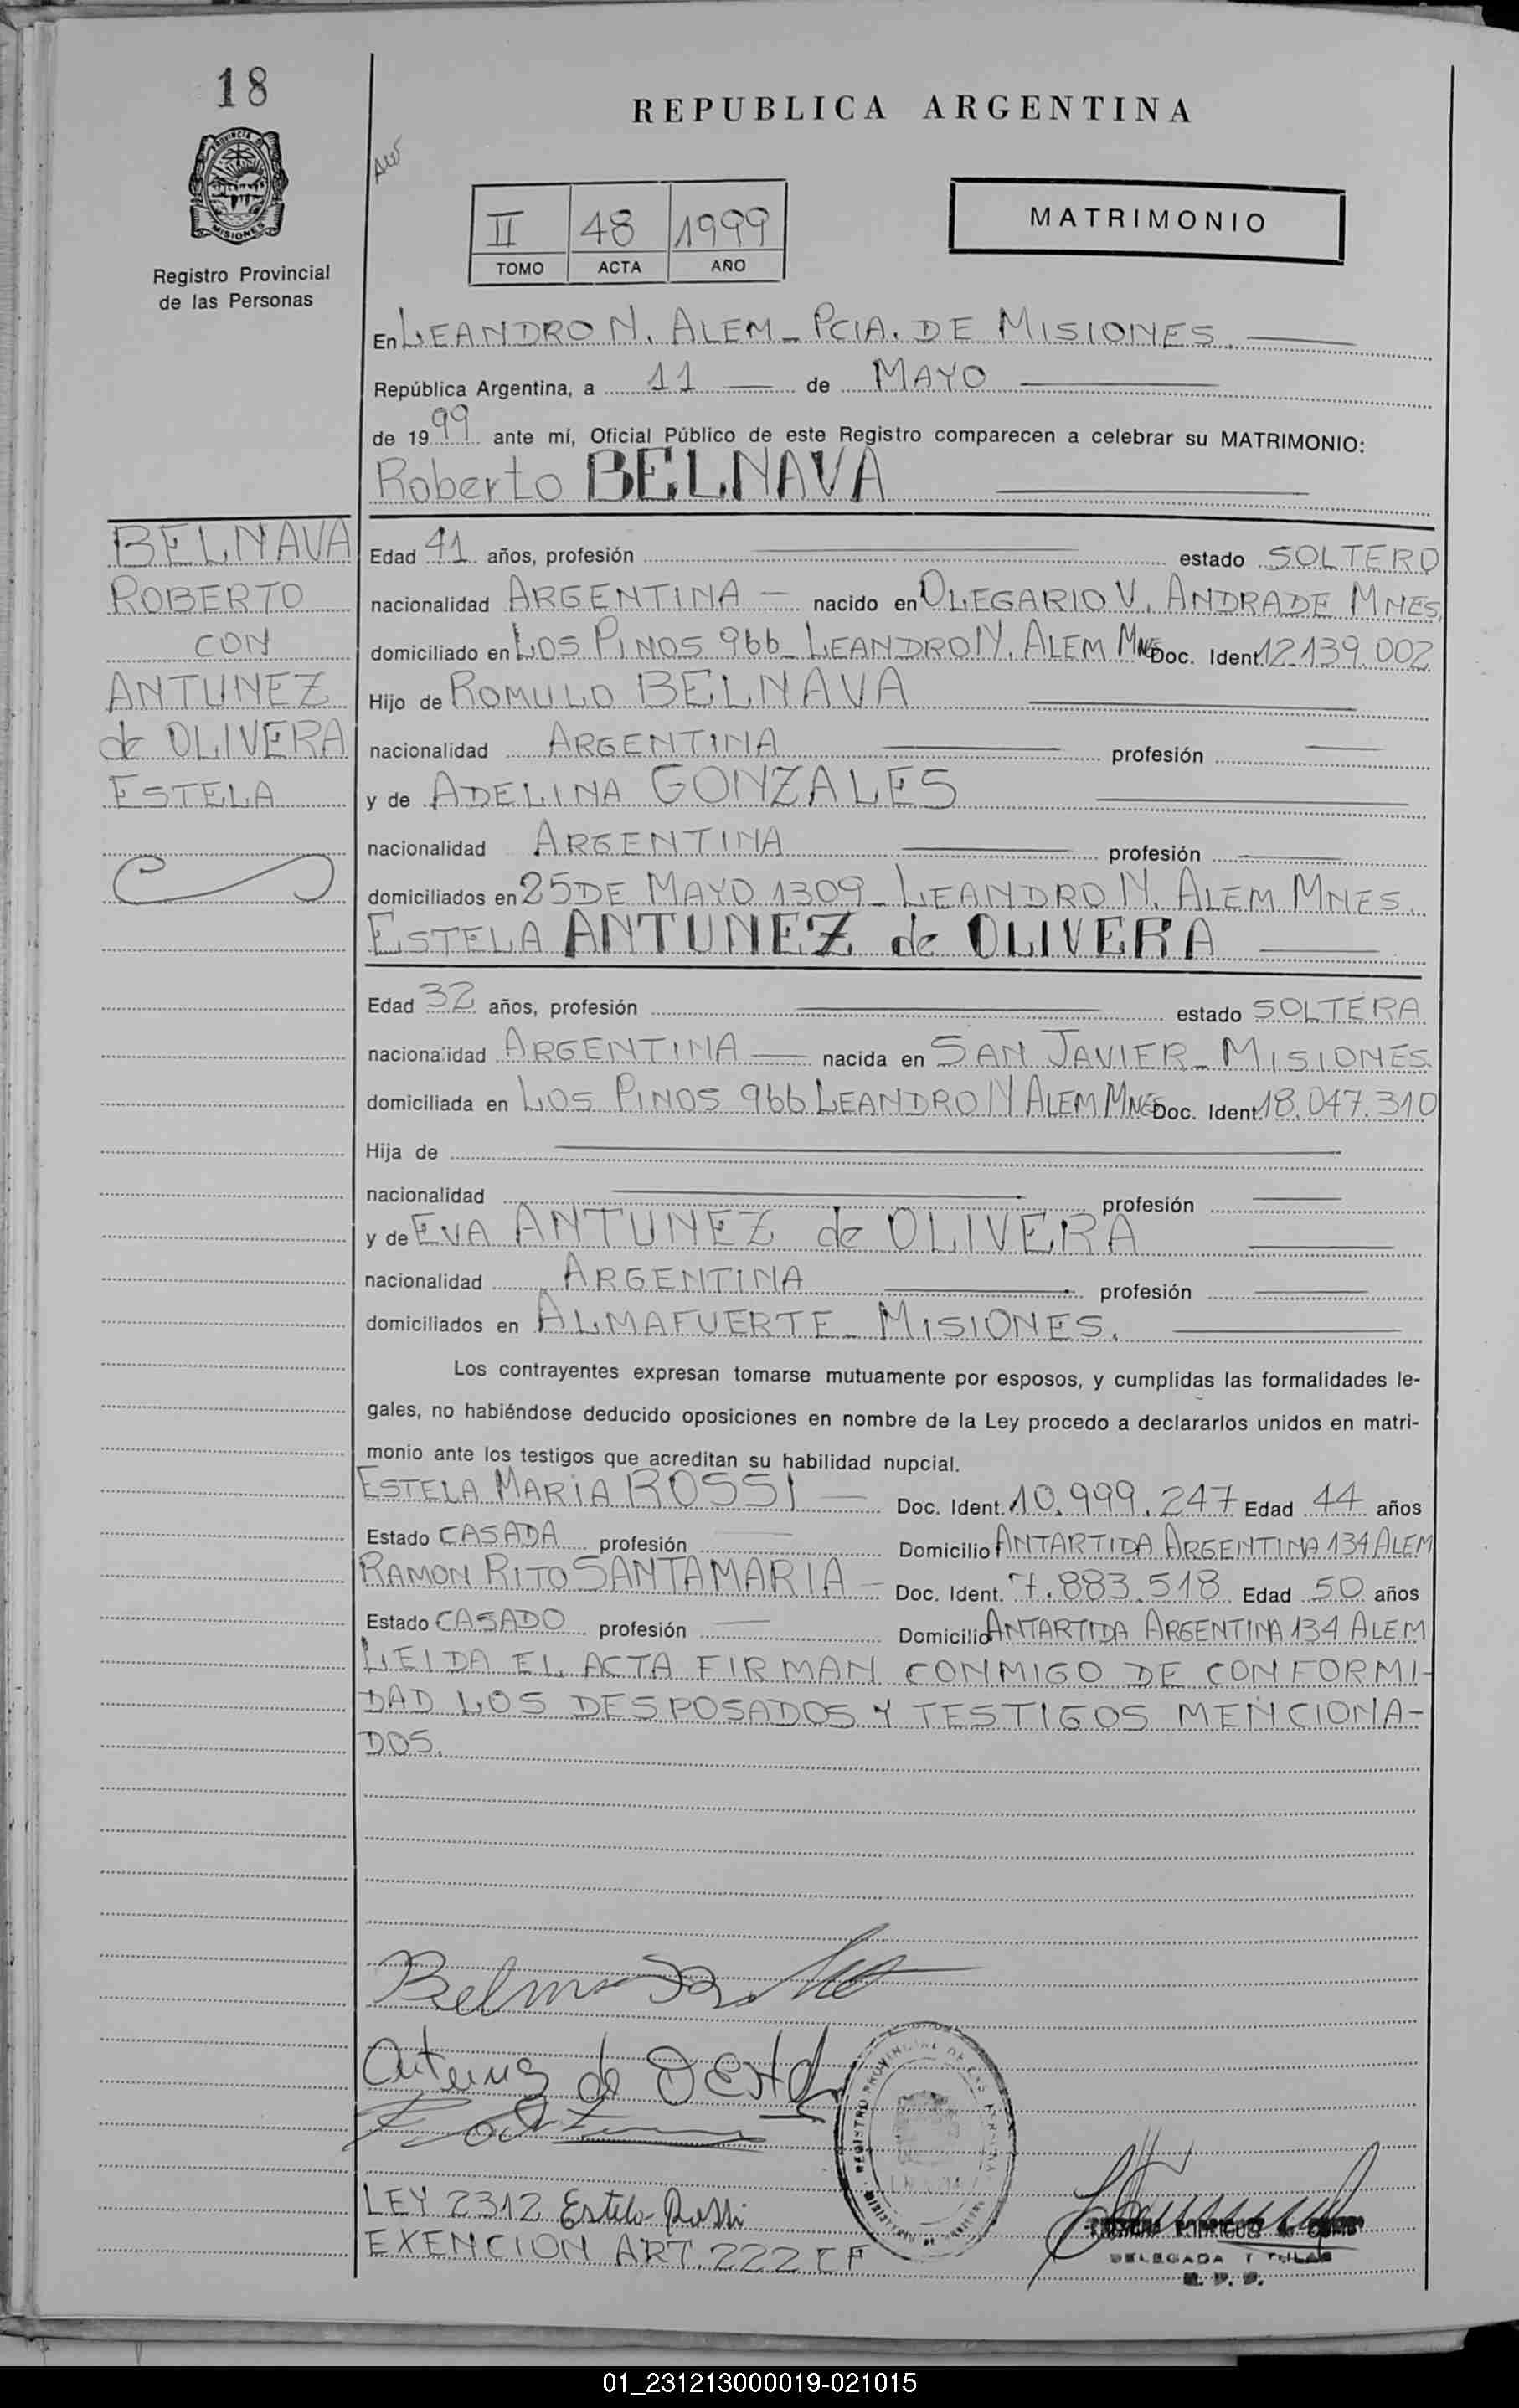 18
PROVINCIA DE
MISIONES
Registro Provincial
de las Personas
REPUBLICA ARGENTINA
II 48 1999
TOMO ACTA AÑO
MATRIMONIO
En LEANDRO N. ALEM - PCIA. DE MISIONES.
República Argentina, a 11 de MAYO
de 1999 ante mí, Oficial Público de este Registro comparecen a celebrar su MATRIMONIO:
Roberto BELNAVA
BELNAVA
ROBERTO
CON
ANTUNEZ
de OLIVERA
ESTELA
Edad 41 años, profesión estado SOLTERO
nacionalidad ARGENTINA - nacido en OLEGARIO V. ANDRADE MNES.
domiciliado en LOS PINOS 966 - LEANDRO N. ALEM MNES Doc. Ident. 12.139.002
Hijo de ROMULO BELNAVA
nacionalidad ARGENTINA profesión
y de ADELINA GONZALES
nacionalidad ARGENTINA profesión
domiciliados en 25 DE MAYO 1309 - LEANDRO N. ALEM MNES.
ESTELA ANTUNEZ de OLIVERA
Edad 32 años, profesión estado SOLTERA
nacionalidad ARGENTINA nacida en SAN JAVIER - MISIONES
domiciliada en LOS PINOS 966 LEANDRO N ALEM MNES Doc. Ident. 18.047.310
Hija de
nacionalidad profesión
y de EVA ANTUNEZ de OLIVERA
nacionalidad ARGENTINA profesión
domiciliados en ALMAFUERTE - MISIONES.
Los contrayentes expresan tomarse mutuamente por esposos, y cumplidas las formalidades le-
gales, no habiéndose deducido oposiciones en nombre de la Ley procedo a declararlos unidos en matri-
monio ante los testigos que acreditan su habilidad nupcial.
ESTELA MARIA ROSSI - Doc. Ident. 10.999.247 Edad 44 años
Estado CASADA profesión Domicilio ANTARTIDA ARGENTINA 134 ALEM
RAMON RITO SANTAMARIA - Doc. Ident. 7.883.518 Edad 50 años
Estado CASADO profesión Domicilio ANTARTIDA ARGENTINA 134 ALEM
LEIDA EL ACTA FIRMAN CONMIGO DE CONFORMI-
DAD LOS DESPOSADOS Y TESTIGOS MENCIONA-
DOS.
REGISTRO PROVINCIAL DE LAS PERSONAS
LEY 2312 Estela Rossi
EXENCION ART. 222 CF
DELEGADA TITULAR
R. P. P.
01_231213000019-021015